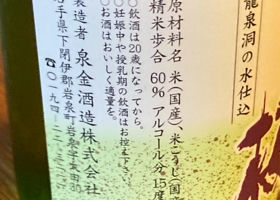 龍泉洞の水仕込
原材料名 米(国産)、米こうじ(国産
精米歩合 60% アルコール分 15度
○飲酒は20歳になってから。
○妊娠中や授乳期の飲酒はお控え下さい。
○お酒はおいしく適量を。
製造者 泉金酒造株式会社
岩手県下閉伊郡岩泉町岩泉字太田30
☎〇一九四-二二-三二